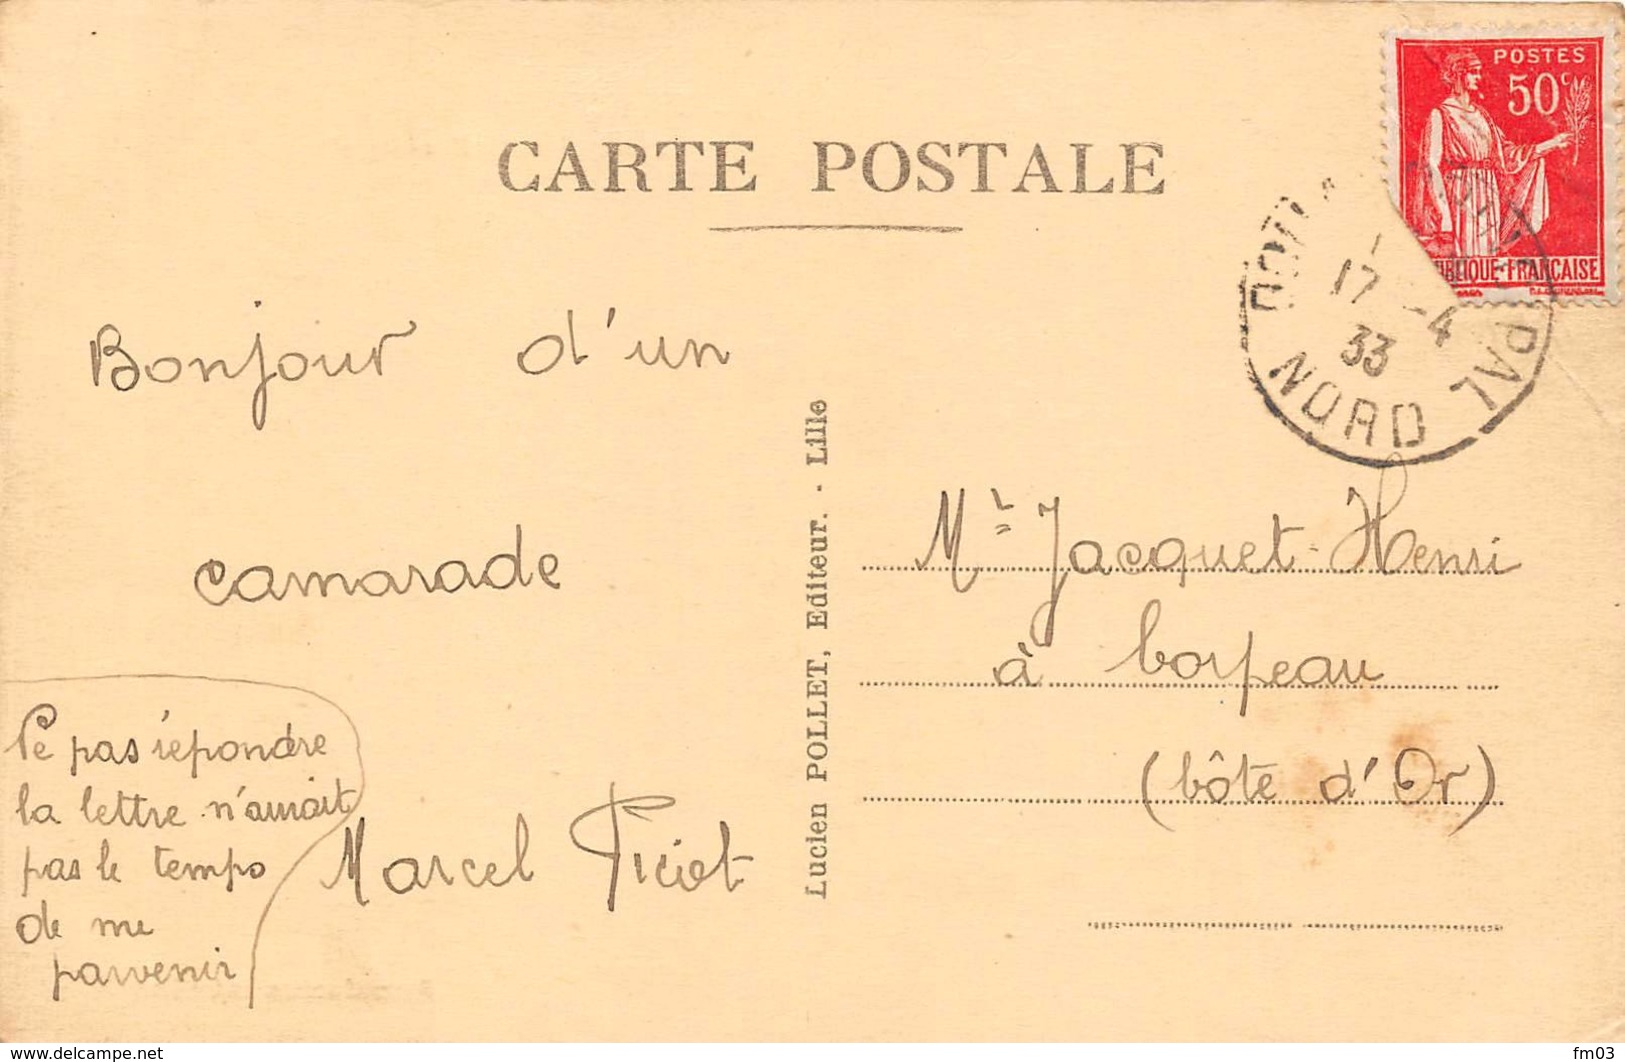 CARTE POSTALE
POSTES
50c
RÉPUBLIQUE FRANÇAISE
17 -4
33
NORD
Bonjour d'un
camarade
Marcel
Pe pas répondre
la lettre n'aurait
pas le temps
de me
parvenir
Lucien POLLET, Editeur. - Lille
Mr Jacquet Henri
à Corpeau
(Côte d'Or)
delcampe.net
fm03